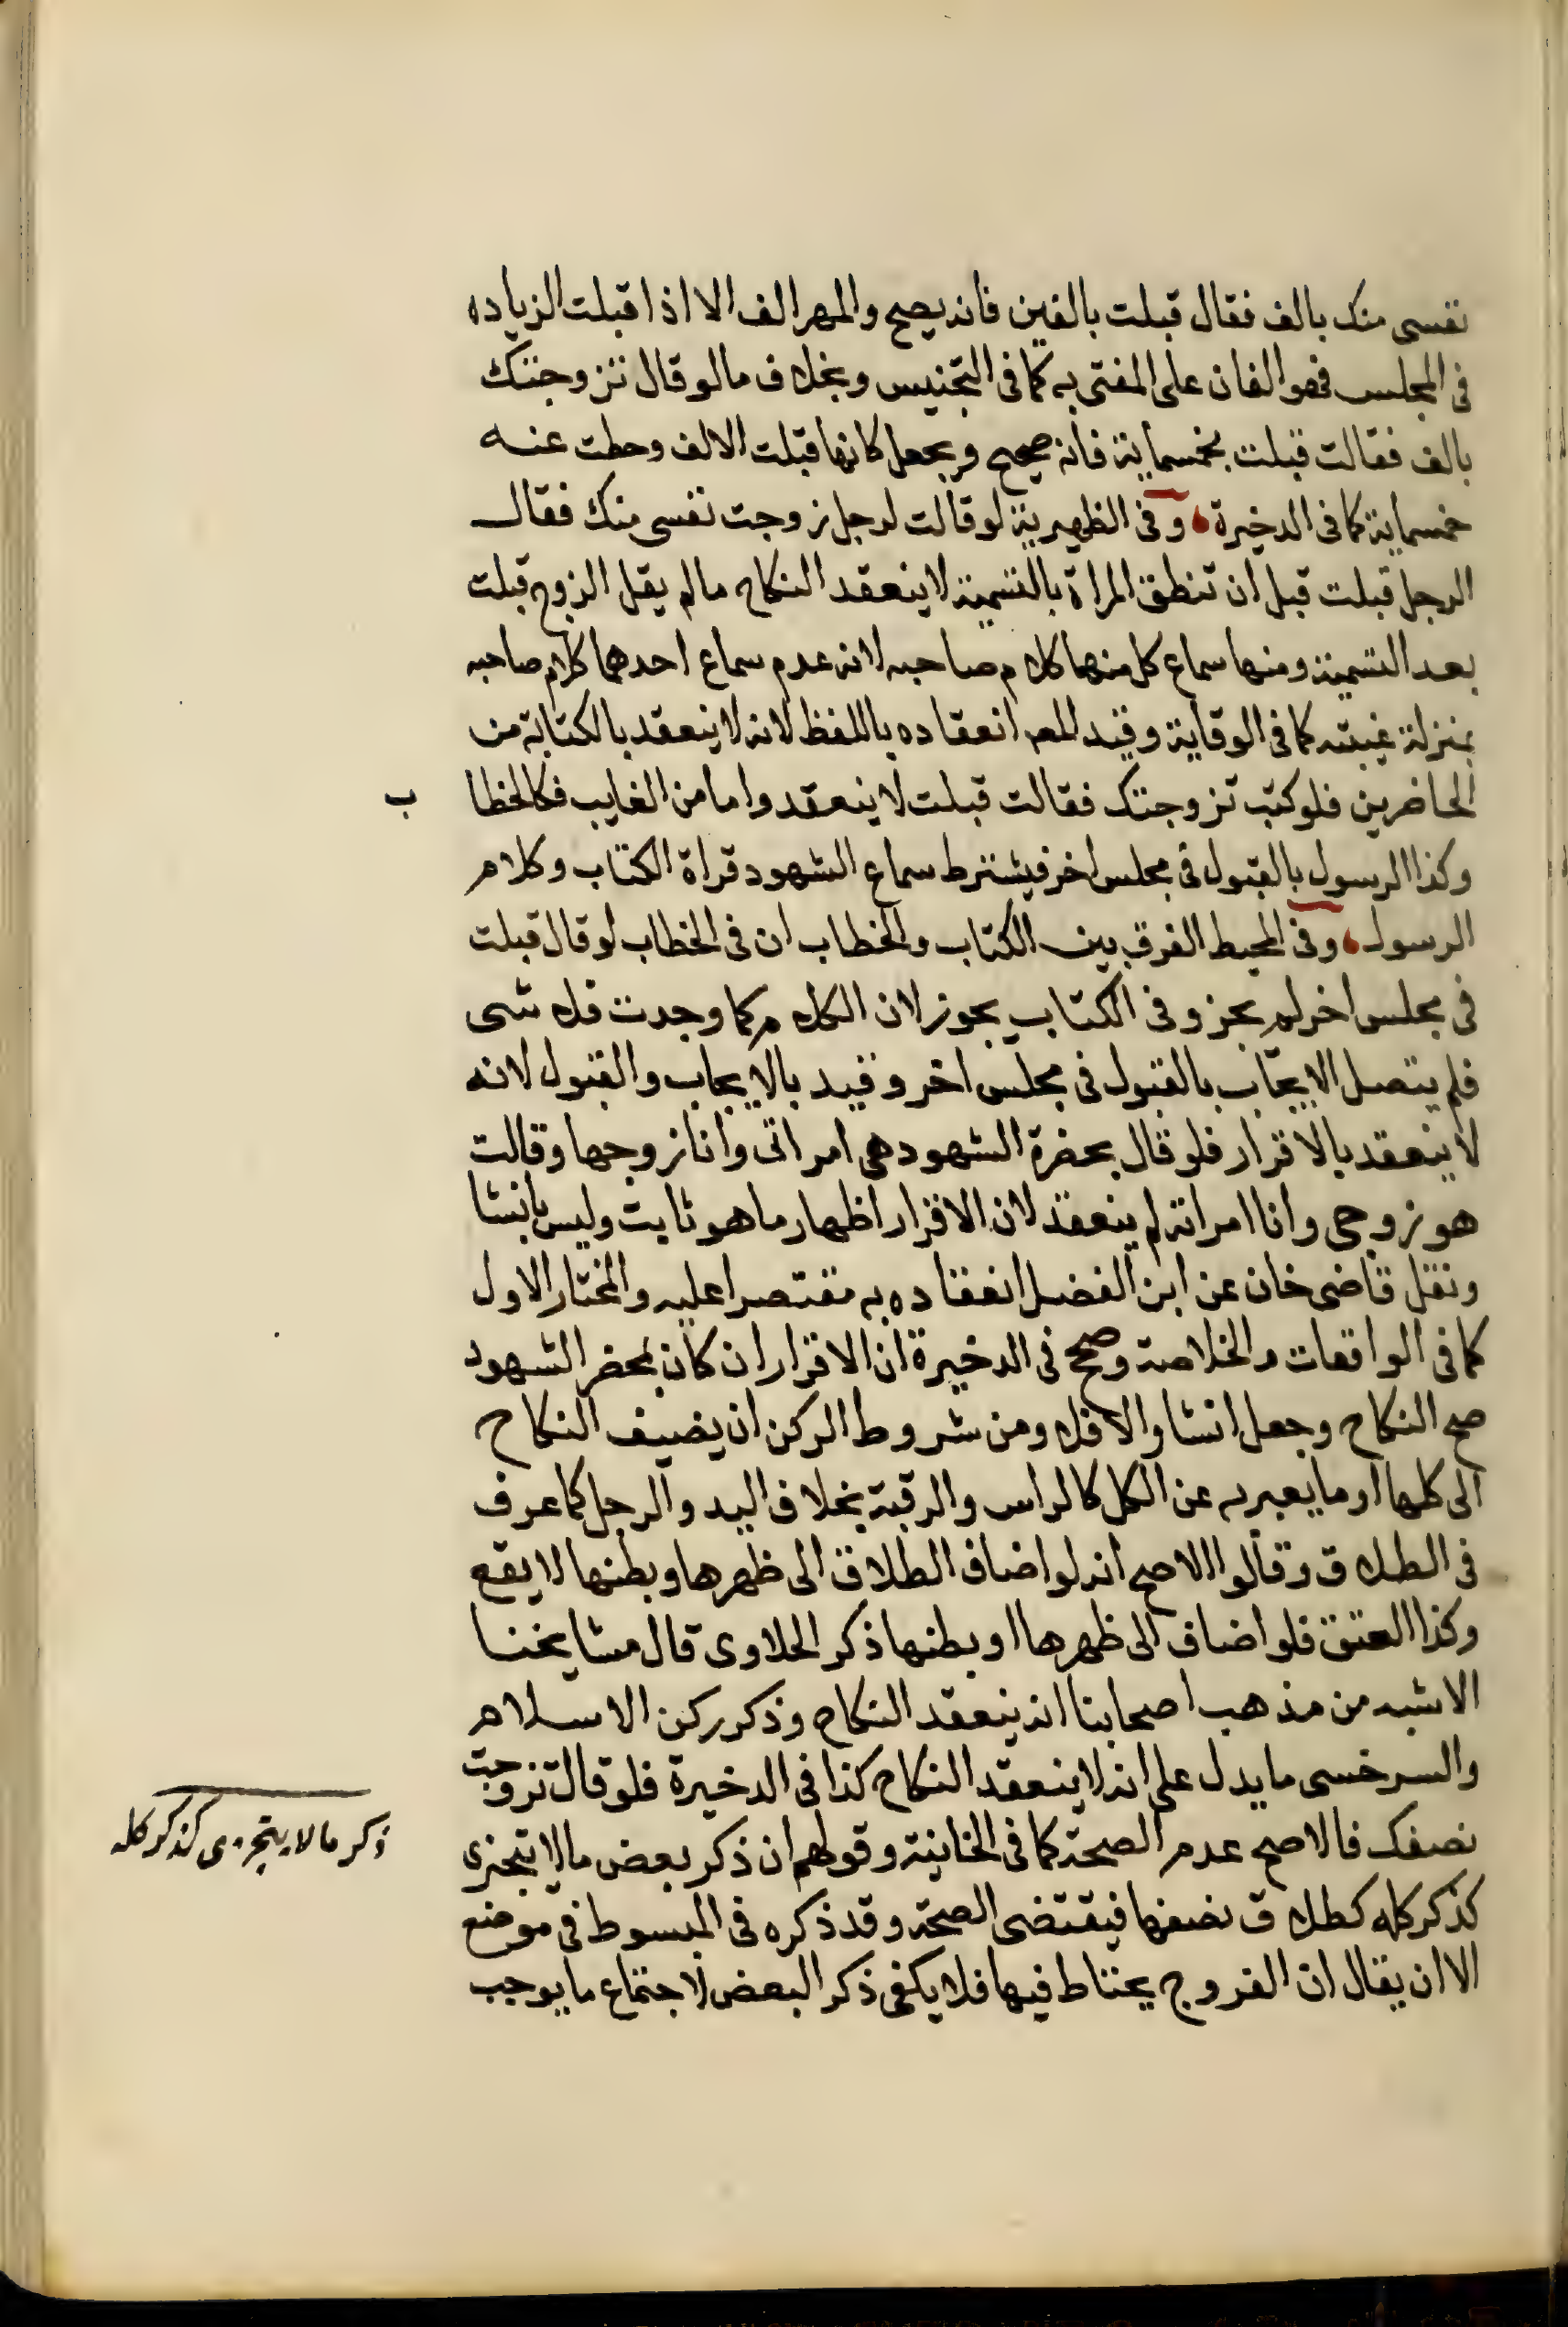 نفسى منك بالف فقال قبلت بالفين فانه يصح والمهر الف الا اذا قبلت الزياده
فى المجلس فهو الفان على المفتى به كما فى التجنيس وبخلاف مالو قال تزوجتك
بالف فقالت قبلت بخمسماية فانه صحيح ويجعل كانها قبلت الالف وحطت عنه
خمسماية كما فى الدخيرة وفى الظهيرية لو قالت لرجل زوجت نفسى منك فقال
الرجل قبلت قبل ان تنطق المراة بالتسمية لا ينعقد النكاح مالم يقل الزوج قبلت
بعد التسمية ومنها سماع كل منهما كلام صاحبه لانه عدم سماع احدهما كلام صاحبه
بمنزلة غيبته كما فى الوقاية وقيد المص انعقاده باللفظ لانه لا ينعقد بالكتابة من
الحاضرين فلو كتب تزوجتك فقالت قبلت لا ينعقد واما من الغايب فكالخطاب
وكذا الرسول بالقبول فى مجلس اخر فيشترط سماع الشهود قراة الكتاب وكلام
الرسول وفى المحيط الفرق بين الكتاب والخطاب ان فى الخطاب لو قال قبلت
فى مجلس اخر لم يجز وفى الكتاب يجوز لان الكلام كما وجدت فلا شى
فلم يتصل الايجاب بالقبول فى مجلس اخر وقيد بالايجاب والقبول لانه
لا ينعقد بالاقرار فلو قال بحضرة الشهود هى امراتى وانا زوجها وقالت
هو زوجى وانا امراته لم ينعقد لان الاقرار اظهار ما هو ثابت وليس بانشا
ونقل قاضى خان عن ابن الفضل انعقاده به مقتصرا عليه والمختار الاول
كما فى الواقعات والخلاصة وصحح فى الدخيرة ان الاقرار ان كان بمحضر الشهود
صح النكاح وجعل انشا والا فلا ومن شروط الركن ان يضيف النكاح
الى كلها او ما يعبر به عن الكل كالراس والرقبة بخلاف اليد والرجل كما عرف
فى الطلاق وقالوا الاصح انه لو اضاف الطلاق الى ظهرها وبطنها لا يقع
وكذا العتق فلو اضاف الى ظهرها او بطنها ذكر الحلاوى قال مشايخنا
الاشبه من مذهب اصحابنا انه ينعقد النكاح وذكر ركن الاسلام
والسرخسى ما يدل على انه لا ينعقد النكاح كذا فى الدخيرة فلو قال تزوجت
نصفك فالاصح عدم الصحة كما فى الخانية وقولهم ان ذكر بعض مالا يتجزى
كذكر كله كطلاق نصفها فيقتضى الصحة وقد ذكره فى المبسوط فى موضع
الا ان يقال ان الفروج يحتاط فيها فلا يكفى ذكر البعض لاجتماع ما يوجب
ذكر مالا يتجزى كذكر كله